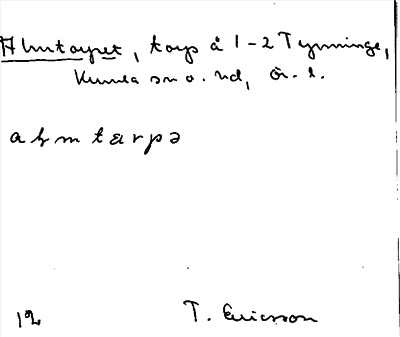 Almtorpet, torp å 1-2 Tynninge,
Kumla sn o. hd, Ör. l.
a ɫ m t a r p ə
12 T. Ericsson